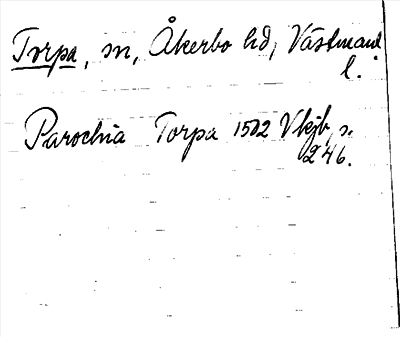 Torpa, sn, Åkerbo hd, Västmanl
l.
Parochia Torpa 1502 Vkjb, s.
246.